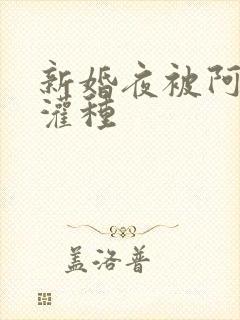 新婚夜被阿
灌种
盖洛普